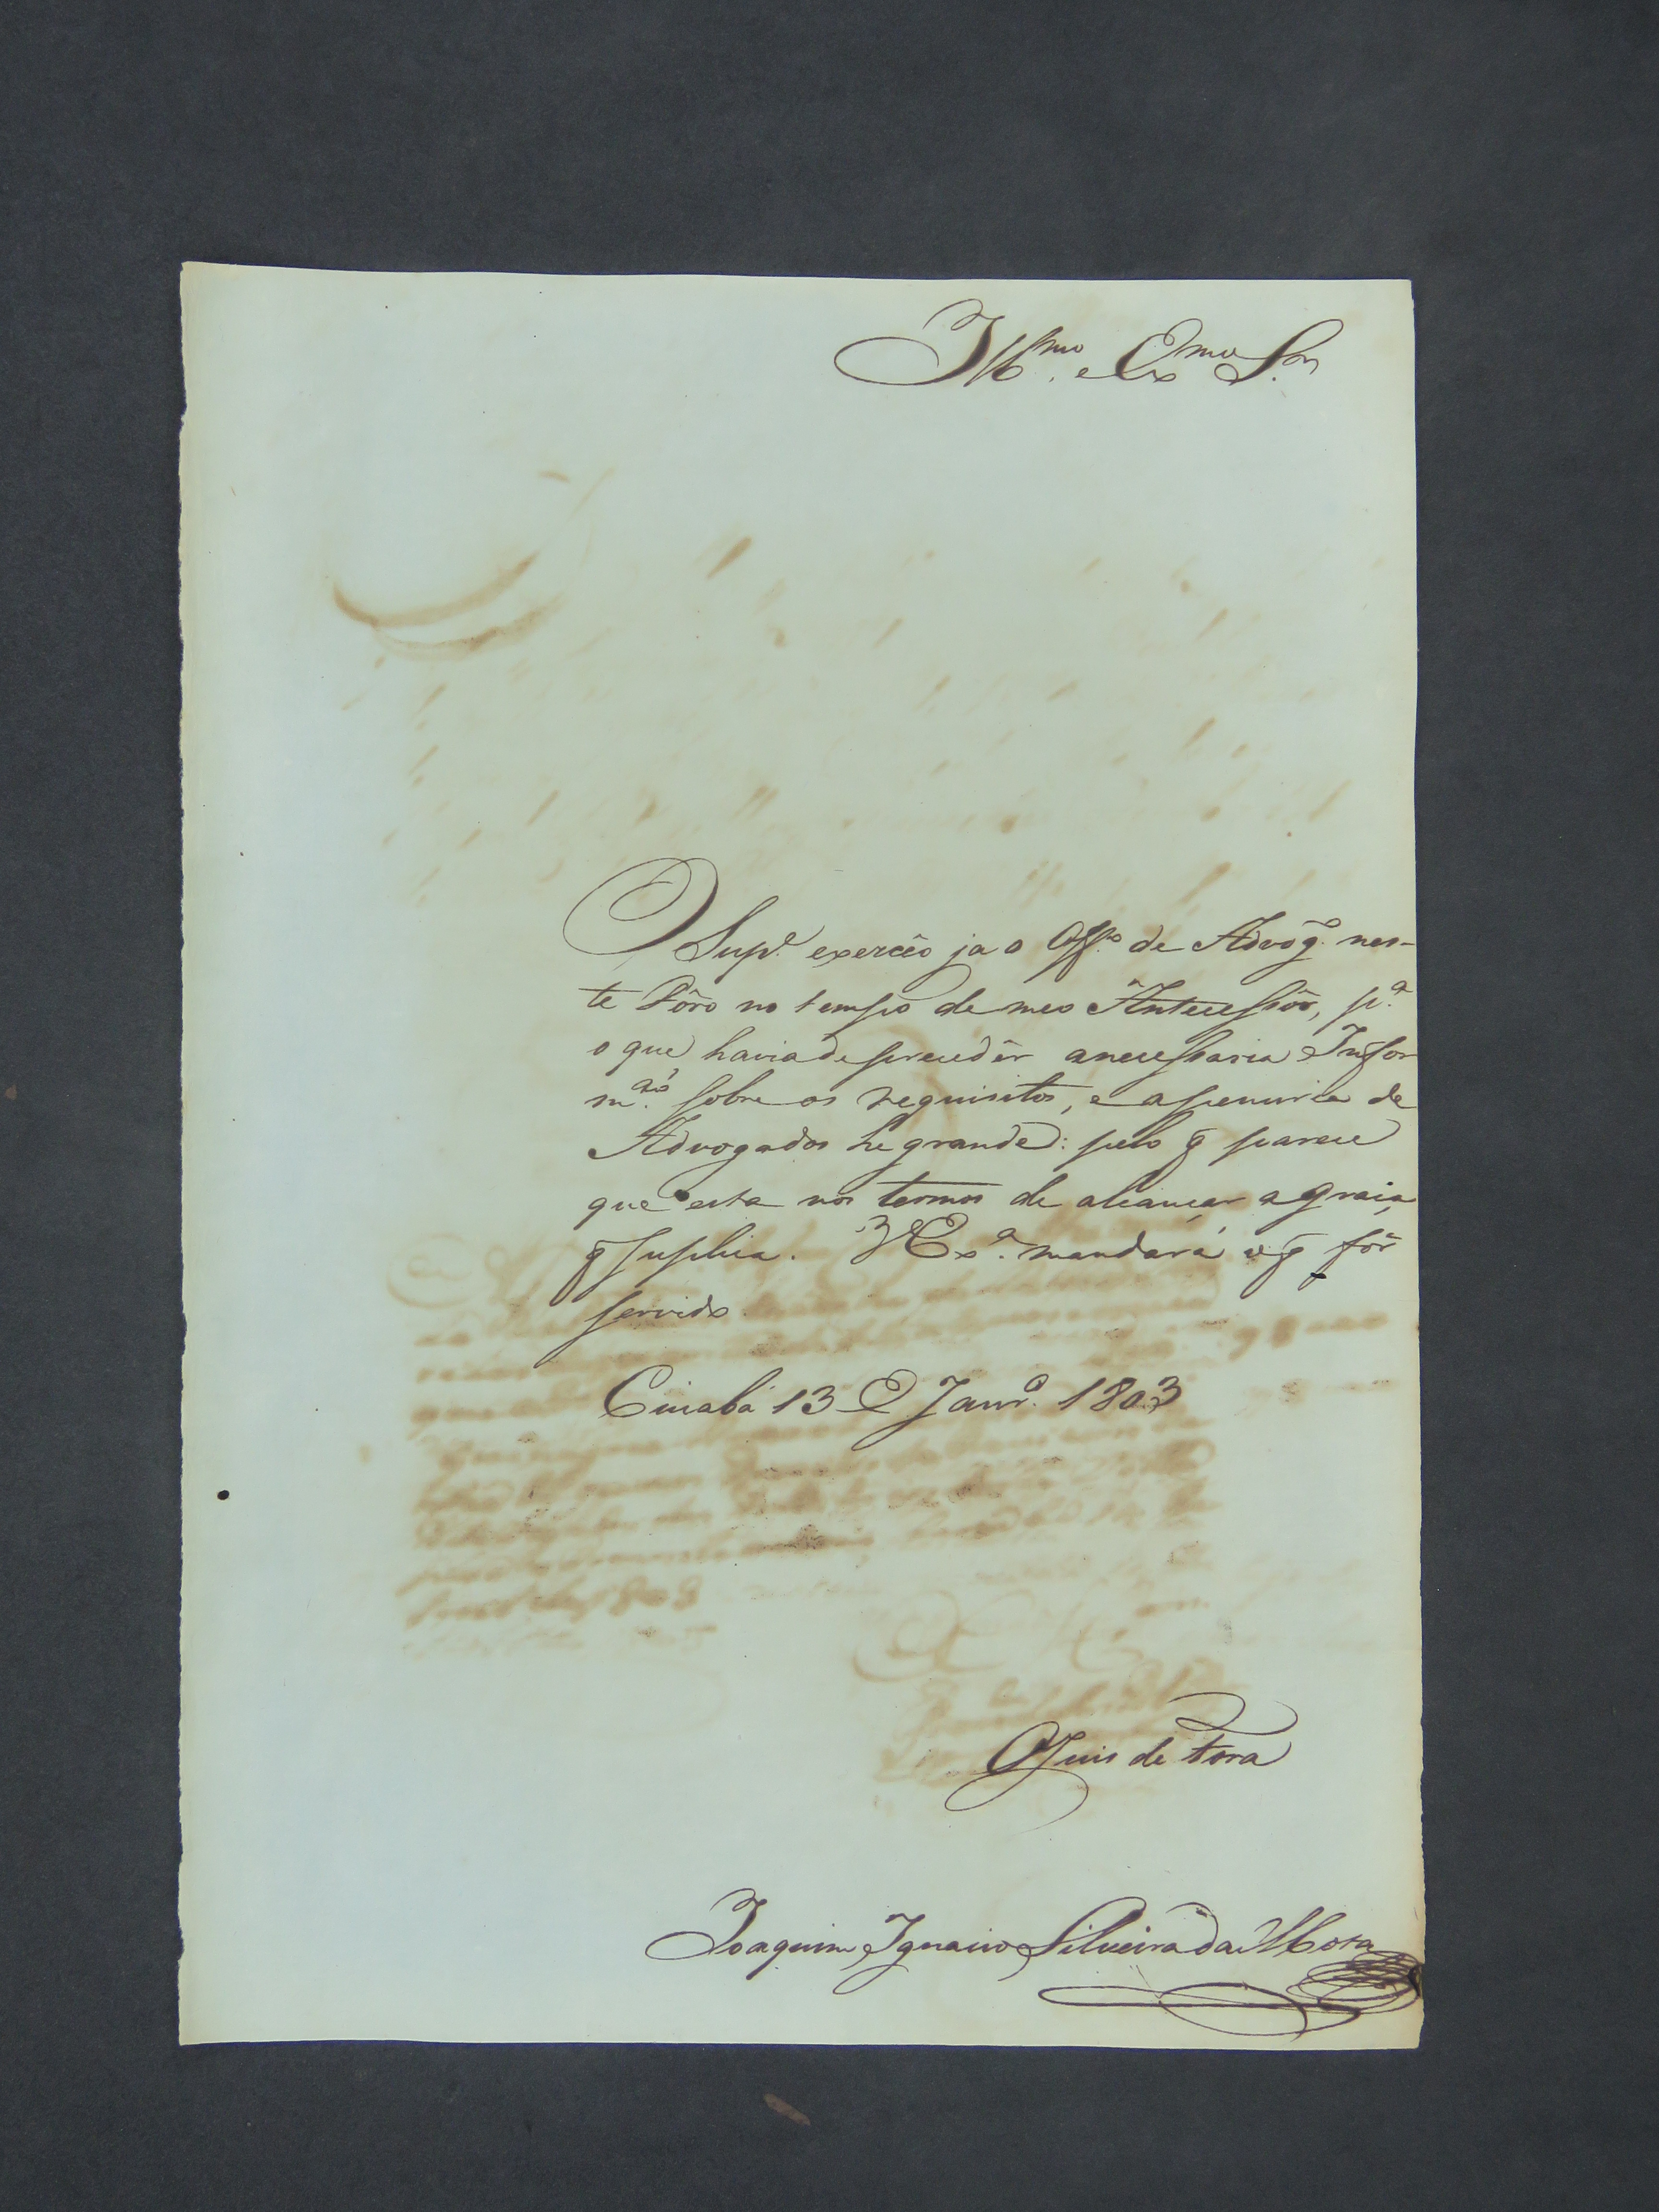 Ill.mo e Ex.mo S.or
O Sup.e exerceo ja o Off.o de Advog.o nes-
te Fôro no tempo de meo Antecessôr, p.a
o que havia de precedêr a necessaria Infor
m.aó sobre os requisitos, e a penuria de
Advogados he grande: pelo q̃ parece
que esta nos termos de alcançar a graça,
q̃ suplica. V Ex.a mandará o q̃ fôr
servido
Cuiabá 13 de Janr.o 1803
O Juis de Fora
Joaquim Ignacio Silveira da Mota